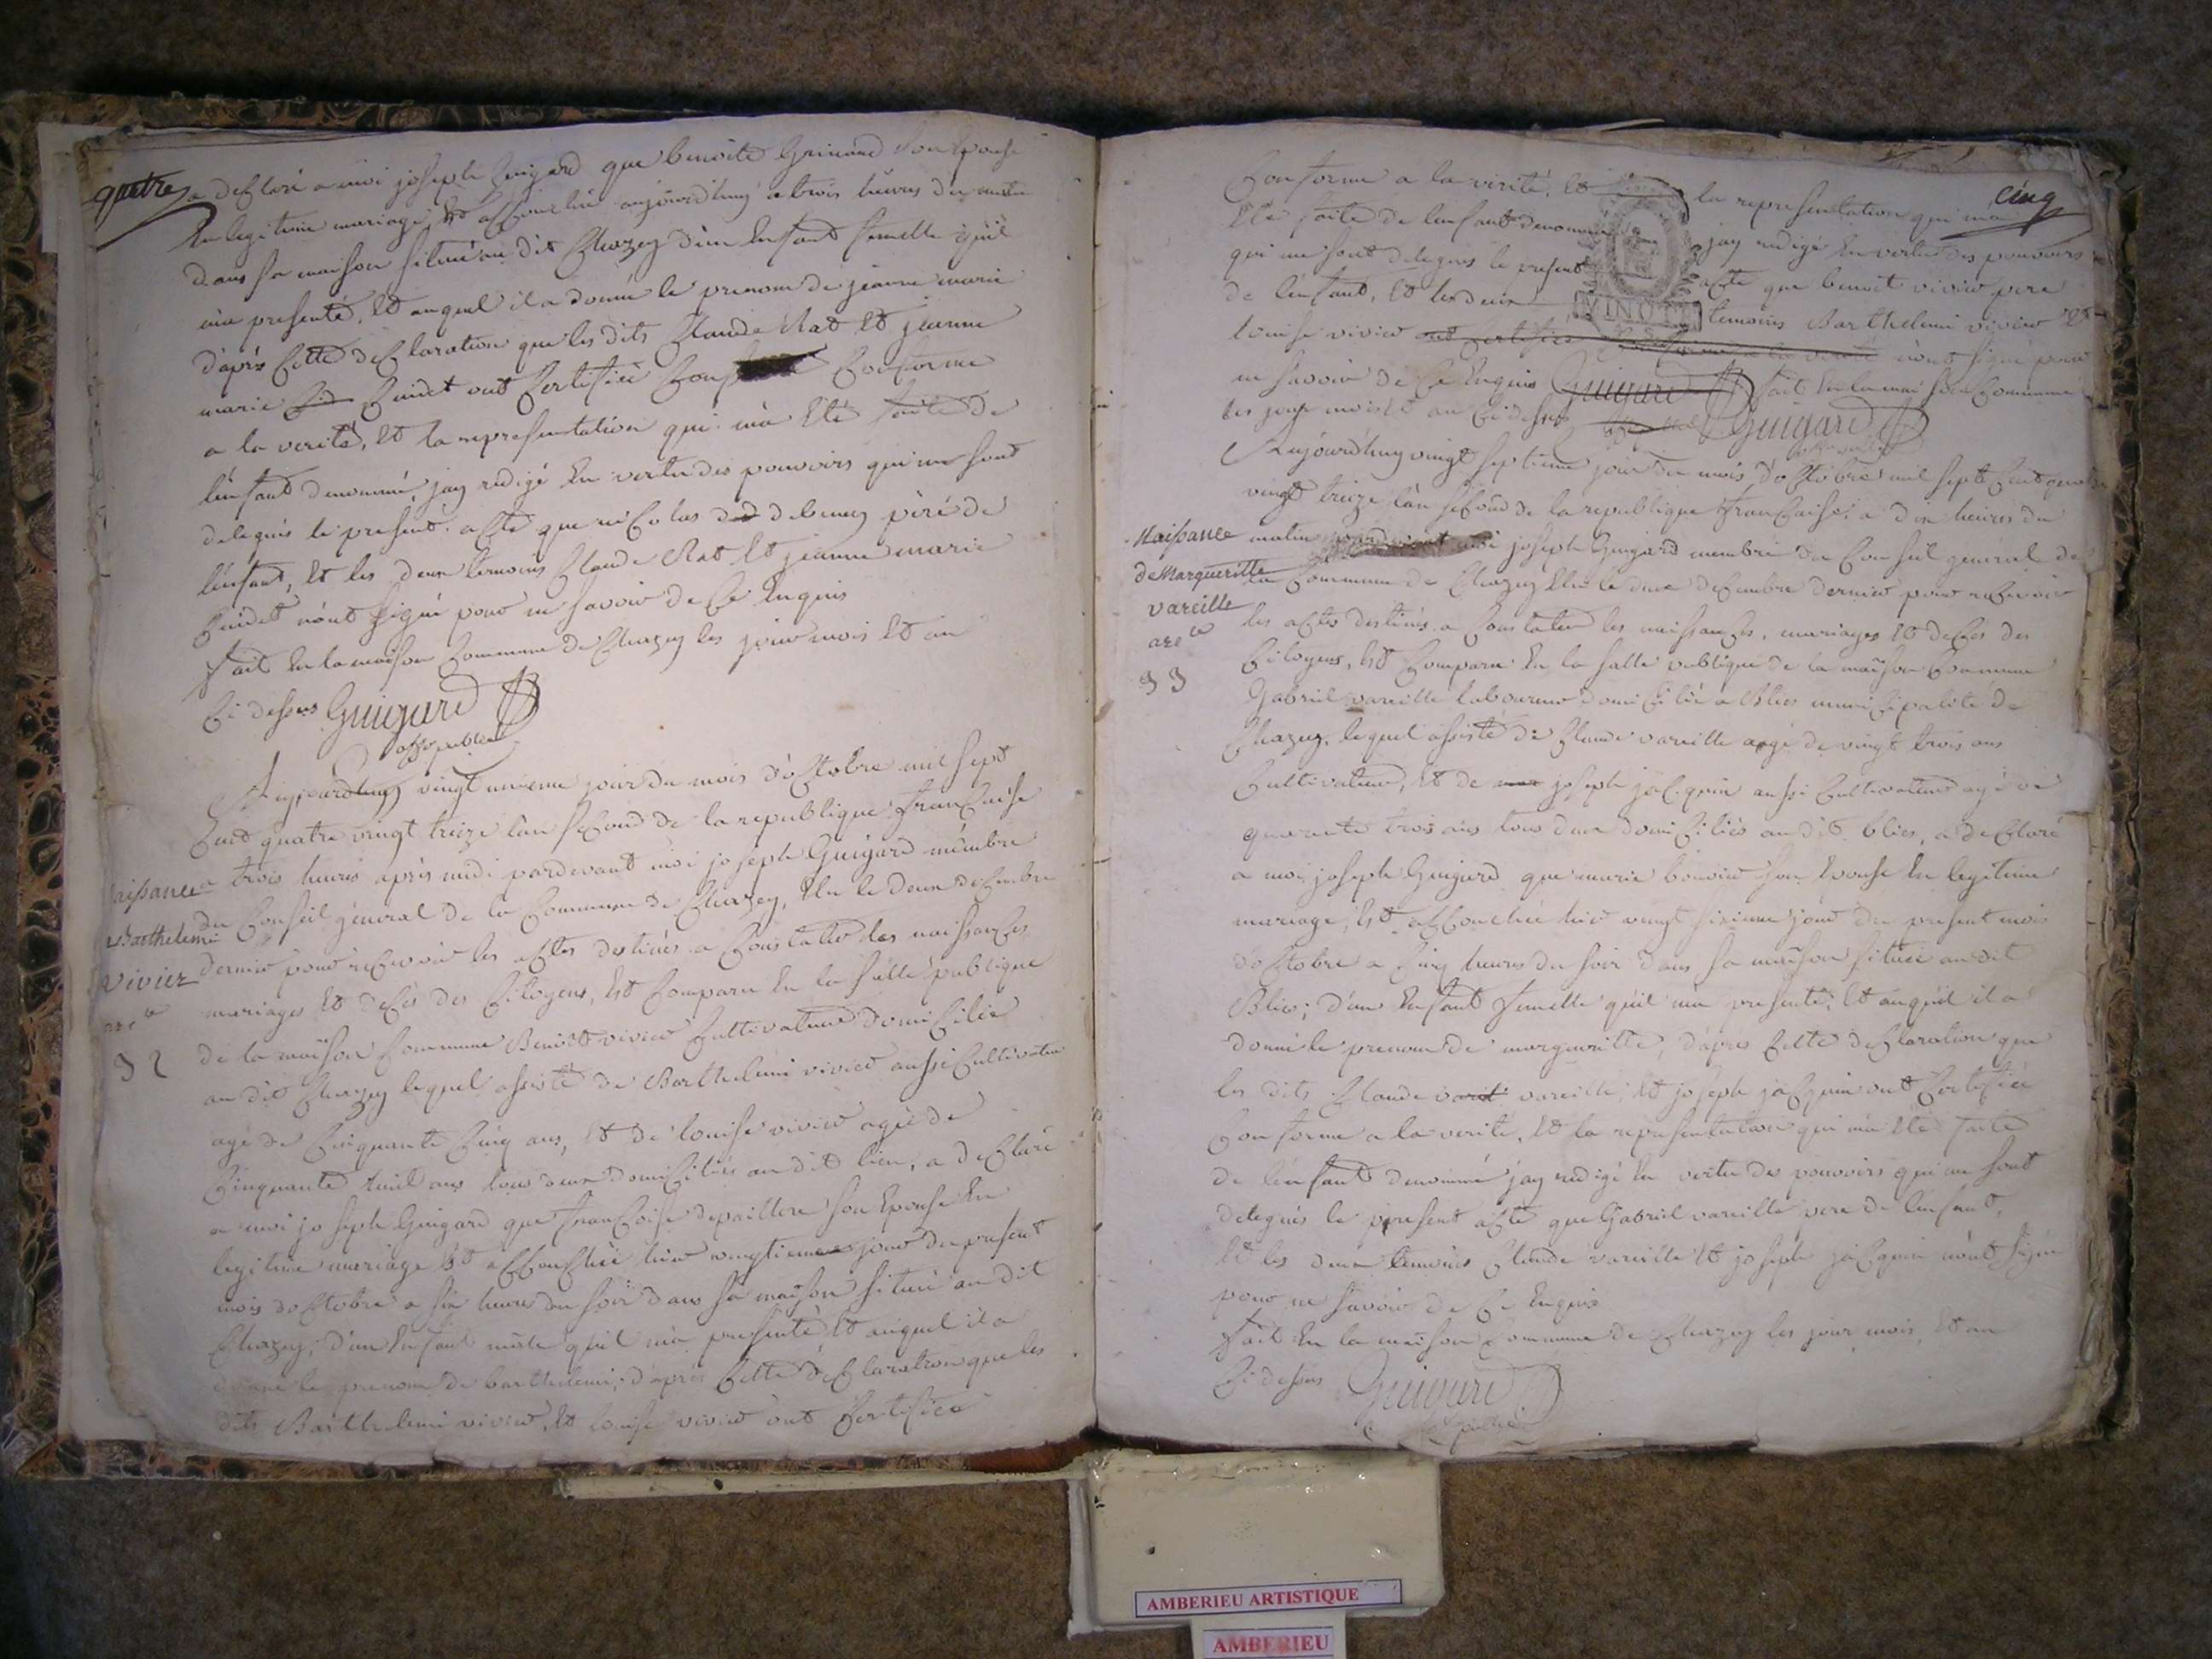 quatre
a declaré a moi joseph Guigard que benoite Grinand son Epouse
En legitime mariage, Est accouchée aujourd'huy a trois heures du matin
dans sa maison située au dit Chazey d'un Enfant femelle qu'il
m'a presenté, Et auquel il a donné le prenom de jeanne marie
d'après cette declaration que les dits Claude Rat Et jeanne
marie Cuidet ont certifiée conforme
a la verité, Et la representation qui m'a Eté faite de
l'enfant denommé, jay redigé En vertu des pouvoirs qui me sont
delegués le present acte que nicolas debeney père de
l'enfant, Et les deux temoins Claude Rat Et jeanne marie
Cuidet n'ont signé pour ne savoir de ce Enquis
fait En la maison commune de Chazey les jour mois Et an
ci dessus Guigard
off. publics
Naissance
Barthelemi
Vivier
32
Aujourd'huy vingt unieme jour du mois d'octobre mil sept
cent quatre vingt treize l'an second de la republique francaise
a trois heures après midi pardevant moi joseph Guigard membre
du Conseil géneral de la Commune de Chazey, Elu le deux decembre
dernier pour recevoir les actes destinés a constater les naissances
mariages Et decès des citoyens, Est comparu En la salle publique
de la maison commune Benoit vivier cultivateur domicilié
au dit Chazey lequel assisté de Barthelemi vivier aussi cultivateur
agé de cinquante cinq ans, Et de louise vivier agée de
cinquante huit ans tous deux domiciliés au dit lieu, a declaré
a moi joseph Guigard que francoise depaillere son Epouse En
legitime mariage Est accouchée hier vingtieme jour du present
mois d'octobre a six heures du soir dans sa maison située au dit
Chazey, d'un Enfant mâle qu'il m'a presenté Et auquel il a
donné le prenom de barthelemi, d'après cette declaration que les
dits Barthelemi vivier, Et louise vivier ont certifiée
cinq
conforme a la verité, Et la representation qui m'a
Eté faite de l'enfant denommé jay redigé En vertu des pouvoirs
qui me sont delegués le present acte que benoit vivier pere
de l'enfant, Et les deux temoins Barthelemi vivier Et
louise vivier ont certifiée conforme a la verité n'ont signé pour
ne savoir de ce Enquis Guigard fait En la maison commune
les jour mois Et an ci dessus Guigard
Naissance
de Margueritte
vareille
33
Aujourd'huy vingt septieme jour du mois d'octobre mil sept cent quatre
vingt treize l'an second de la republique francaise, a dix heures du
matin pardevant moi joseph Guigard membre du Conseil general de
la Commune de Chazey Elu le deux decembre dernier pour recevoir
les actes destinés a constater les naissances, mariages Et decès des
citoyens, Est comparu En la salle publique de la maison commune
Gabriel vareille laboureur domicilié a Blies municipalité de
Chazey, lequel assisté de Claude vareille agé de vingt trois ans
cultivateur, Et de joseph jacquin aussi cultivateur agé de
quarante trois ans tous deux domiciliés au dit blies, a declaré
a moi joseph Guigard que marie bouvier son Epouse En legitime
mariage, Est accouchée hier vingt sixieme jour du present mois
d'octobre a cinq heures du soir dans sa maison située au dit
Blies; d'un Enfant femelle qu'il m'a presenté; Et auquel il a
donné le prenom de marguerite, d'après cette declaration que
les dits Claude vareille, Et joseph jacquin ont certifiée
conforme a la verité, Et la representation qui m'a Eté faite
de l'enfant denommé jay redigé En vertu des pouvoirs qui me sont
delegués le present acte que Gabriel vareille pere de l'enfant,
Et les deux temoins Claude vareille Et joseph jacquin n'ont signé
pour ne savoir de ce Enquis
fait En la maison commune de Chazey les jour mois Et an
ci dessus Guigard
AMBERIEU ARTISTIQUE
AMBERIEU